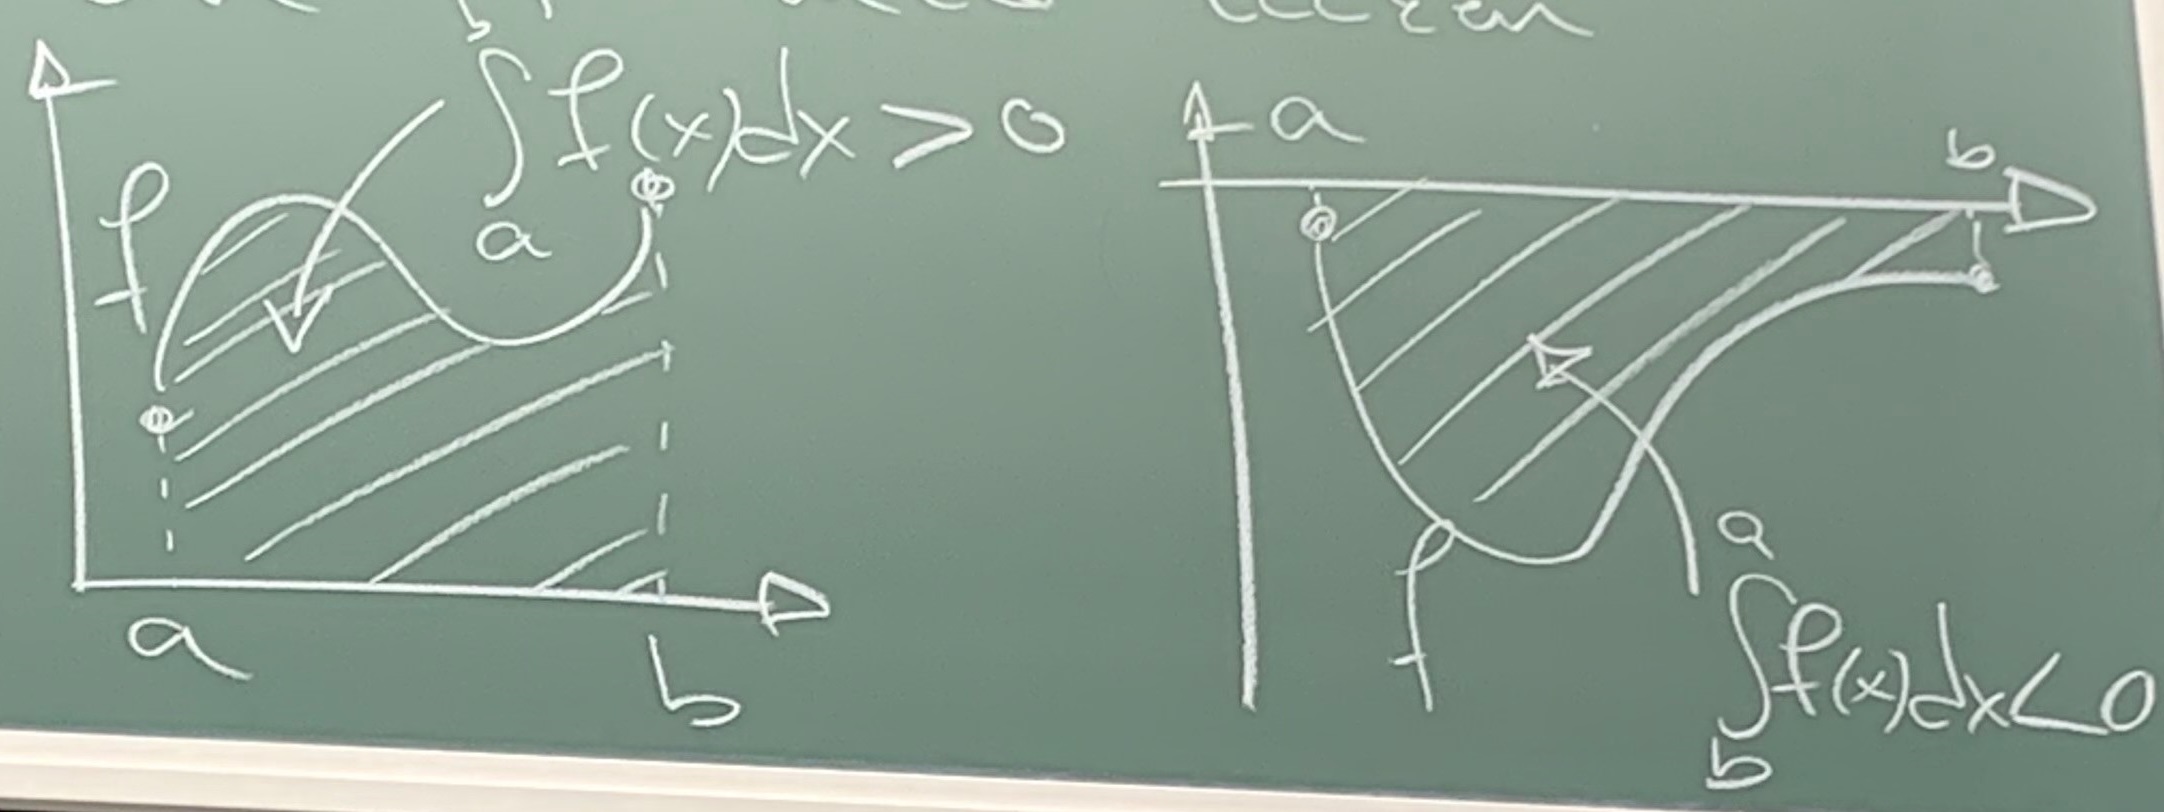 ∫_a^b f(x)dx > 0
f
a
b
a
b
f
∫_b^a f(x)dx < 0